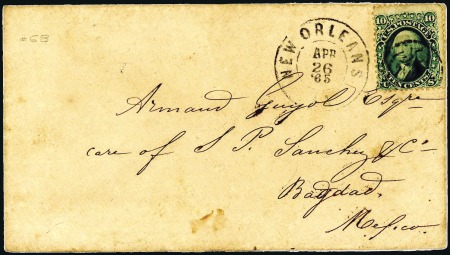 NEW ORLEANS
APR
26
'65
10 10
U.S. POSTAGE
Armand Guyol Esqre
care of S. P. Sanchez & Co
Bagdad,
Mexico.